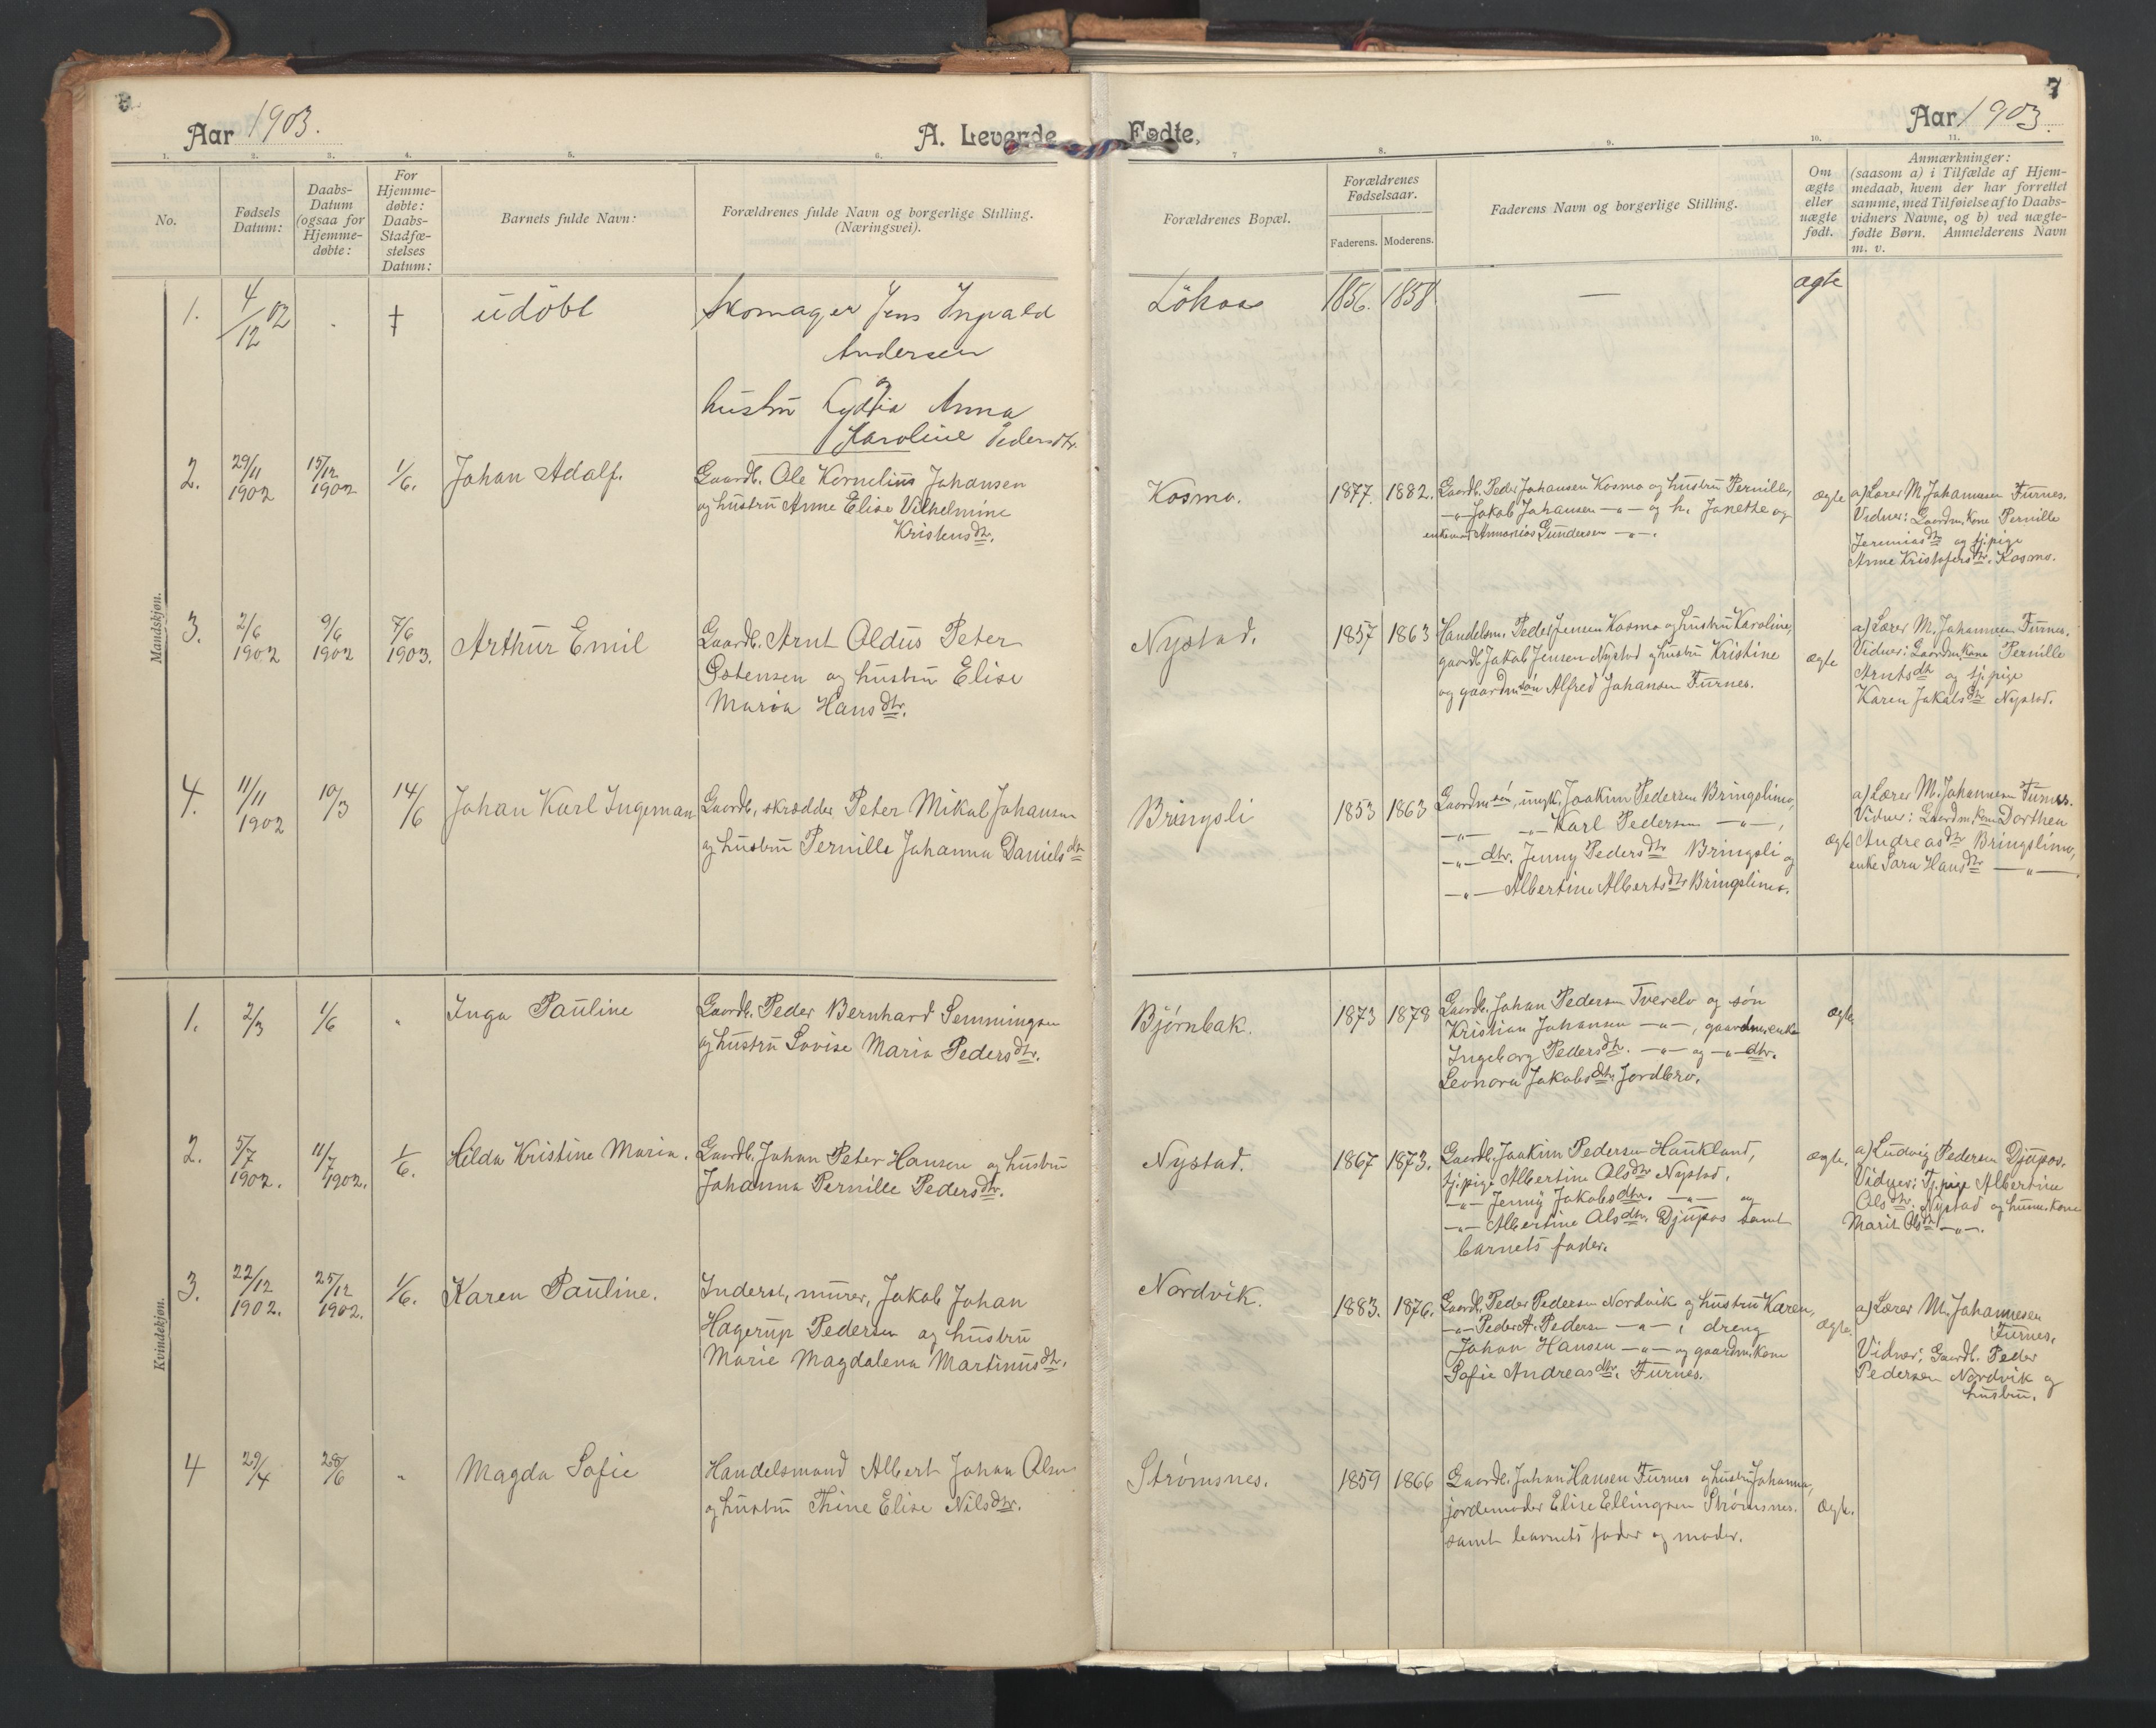 Aar 1903.
A. Levende
Fødte,
Aar 1903.
7
1.
2.
3.
4.
5.
6.
7
8.
9.
10.
11.
No.
Fødsels
Datum:
Daabs-
Datum
(ogsaa for
Hjemme-
døbte:
For
Hjemme-
døbte:
Daabs-
Stadfæ-
stelses
Datum:
Barnets fulde Navn:
Forældrenes fulde Navn og borgerlige Stilling.
(Næringsvei).
Forældrenes Bopæl.
Forældrenes
Fødselsaar.
Faderens.
Moderens.
Faderens Navn og borgerlige Stilling.
Om
ægte
eller
uægte
født.
Anmærkninger:
(saasom a) i Tilfælde af Hjem-
medaab, hvem der har forrettet
samme, med Tilføielse af to Daabs-
vidners Navne, og b) ved uægte-
fødte Børn. Anmelderens Navn
m. v.
Mandskjøn.
1.
4/12 02
‡
udöbt
Skomager Jens Ingvald
Andersen
og
hustru Lydia Anna
Karoline Pedersdtr.
Lökaas
1856.
1858
—
ægte
2.
29/11
1902
15/12
1902
1/6.
Johan Adolf.
Gaardb. Ole Kornelius Johansen
og hustru Anne Elise Vilhelmine
Kristensdtr.
Kosmo.
1877.
1882.
Gaardb. Peder Johansen Kosmo og hustru Pernille,
—"— Jakob Johansen —"— og h. Janethe og
enkemand Annanias Gundersen —"—.
ægte
a) Lærer M. Johannesen Furnes.
Vidner: Gaardm.kone Pernille
Jeremiasdtr og tj.pige
Anne Kristofersdtr. Kosmo.
3.
2/6
1902
9/6
1902
7/6
1903.
Arthur Emil
Gaardb. Arnt Oldus Peter
Østensen og hustru Elise
Maria Hansdtr.
Nystad.
1857
1863
Handelsm. Peder Jensen Kosmo og hustru Karoline,
gaardb. Jakob Jensen Nystad og hustru Kristine
og gaardm.søn Alfred Johansen Furnes.
ægte
a) Lærer M. Johannesen Furnes.
Vidner: Gaardm.kone Pernille
Arntsdtr og tj.pige
Karen Jakobsdtr Nystad.
4.
11/11
1902
10/3
14/6
Johan Karl Ingeman
Gaardb., skrædder Peter Mikal Johansen
og hustru Pernille Johanna Danielsdtr
Bringsli
1853
1863
Gaardm.søn, ungk. Joakim Pedersen Bringslimo,
—"— —"— Karl Pedersen —"—,
—"— dtr. Jenny Pedersdtr Bringsli og
—"— Albertine Albertsdtr Bringslimo.
ægte
a) Lærer M. Johannesen Furnes.
Vidner: Gaardm.kone Dorthea
Andreasdtr Bringslimo,
enke Sara Hansdtr —"—.
Kvindekjøn.
1.
2/3
1/6
"
Inga Pauline
Gaardb. Peder Bernhard Semmingsen
og hustru Lovise Maria Pedersdtr.
Bjørnbak.
1873
1878
Gaardb. Johan Pedersen Tverelv og søn
Kristian Johansen —"—, gaardm.enke
Ingeborg Pedersdtr. —"— og —"— dtr.
Leonora Jakobsdtr. Jordbro.
ægte
2.
5/7
1902.
11/7
1902.
1/6.
Hilda Kristine Maria.
Gaardb. Johan Peter Hansen og hustru
Johanna Pernille Pedersdtr.
Nystad.
1867
1873.
Gaardb. Joakim Pedersen Haukland,
tj.pige Albertine Olsdtr Nystad,
—"— Jenny Jakobsdtr. —"— og
—"— Albertine Olsdtr. Djupos samt
barnets fader.
ægte.
a) Ludvig Pedersen Djupos.
Vidner: Tj.pige Albertine
Olsdtr. Nystad og husm.kone
Marit Olsdtr —"—.
3.
22/12
1902.
25/12
1902.
1/6.
Karen Pauline.
Inderst, murer, Jakob Johan
Hagerup Pedersen og hustru
Marie Magdalena Martinusdtr.
Nordvik.
1883.
1876.
Gaardb. Peder Pedersen Nordvik og hustru Karen,
—"— Peder A. Pedersen —"—, dreng
Johan Hansen —"— og gaardm.kone
Sofie Andreasdtr. Furnes.
ægte.
a) Lærer M. Johannesen
Furnes.
Vidner: Gaardb. Peder
Pedersen Nordvik og
hustru.
4
29/4
28/6
"
Magda Sofie
Handelsmand Albert Johan Olsen
og hustru Thine Elise Nilsdtr.
Strømsnes.
1859
1866
Gaardb. Johan Hansen Furnes og hustru Johanna,
jordemoder Elise Ellingsen Strømsnes.
samt barnets fader og moder.
ægte.